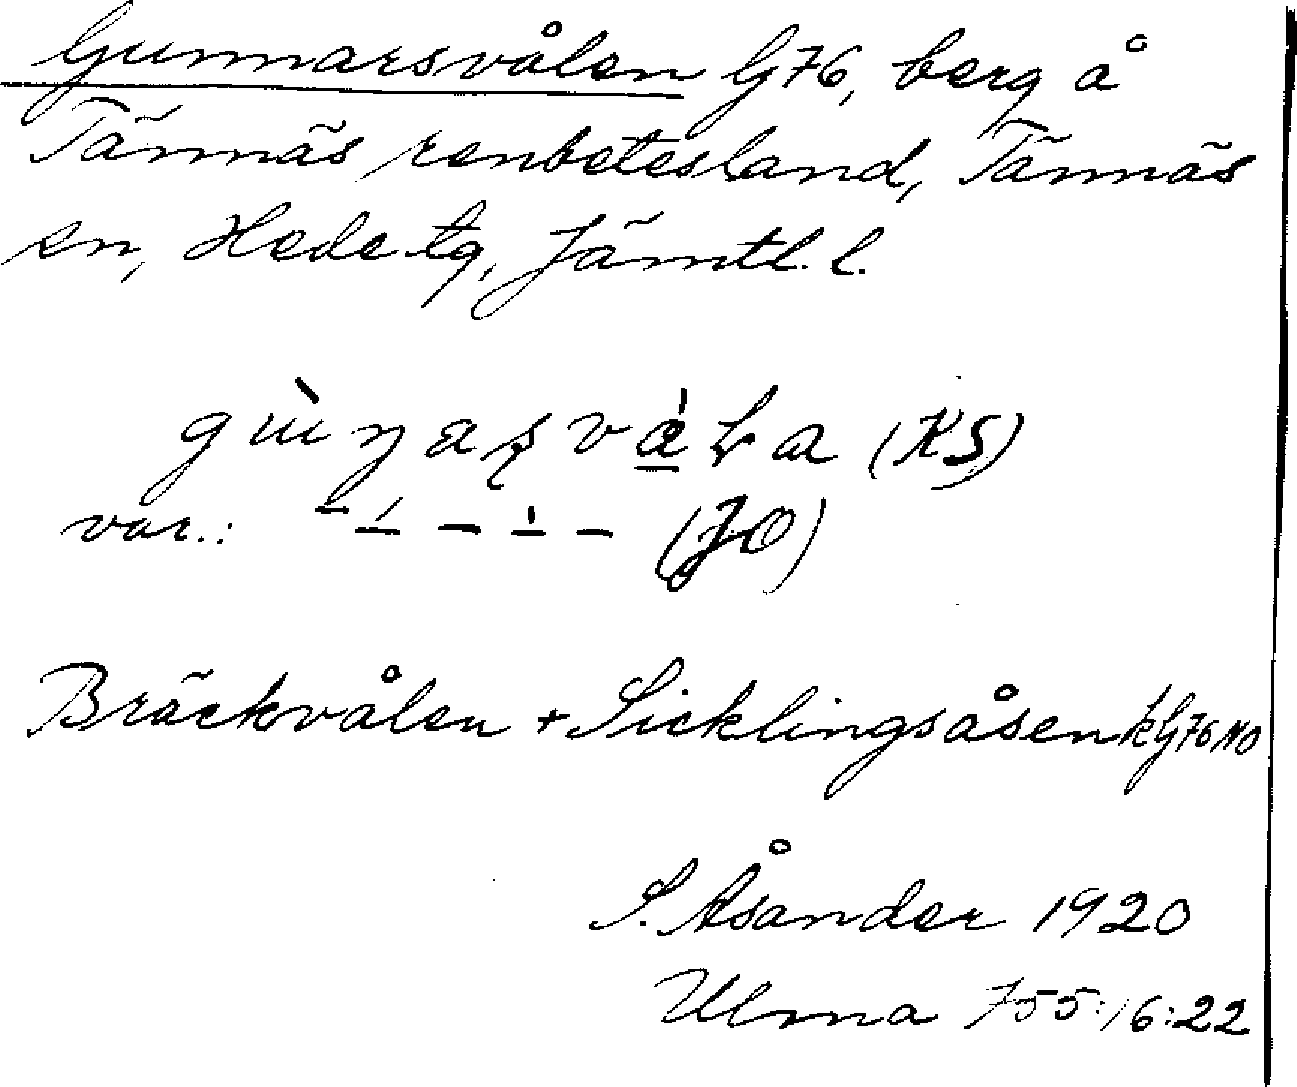 Gunnarsvålen G76, berg å
Tännäs renbetesland, Tännäs
sn, Hede tg, Jämtl. l.
(KS)
var.: (JO)
Bräckvålen + Sicklingsåsen kG76NO
S. Åsander 1920
Ulma 755:16:22